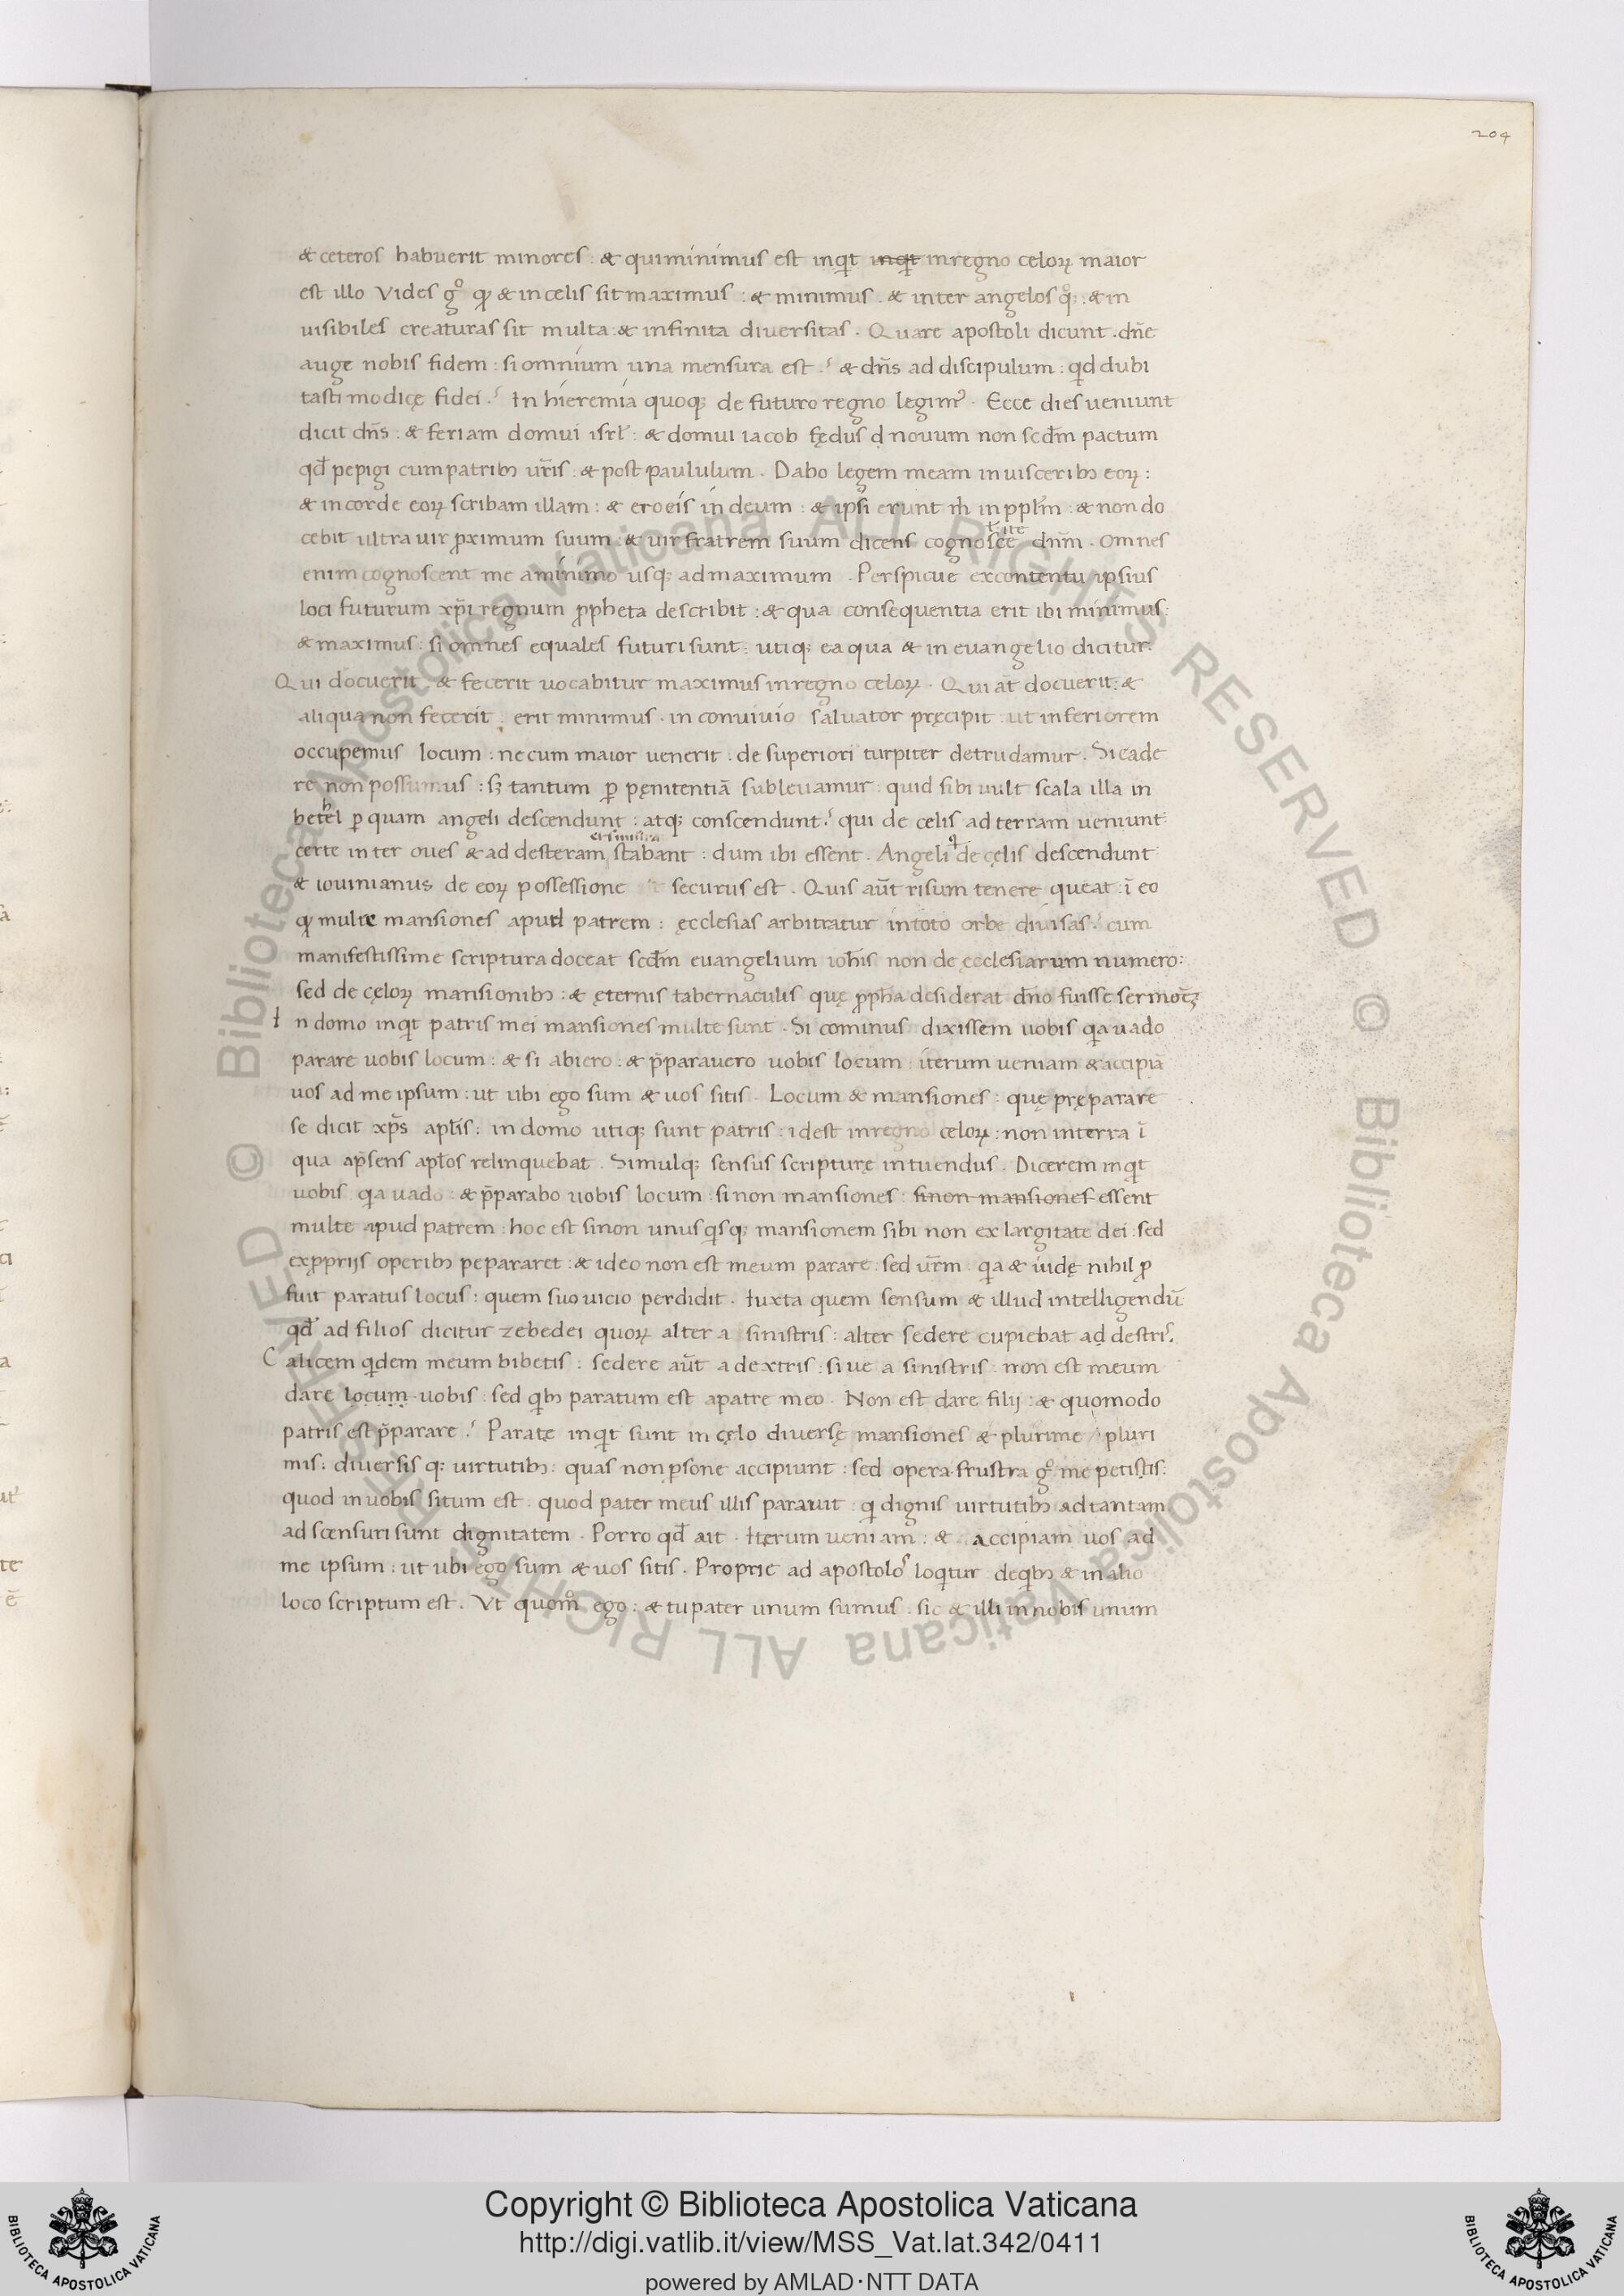 204
& ceteros habuerit minores : & qui minimus est inqͥt inqͥt in regno celoꝝ maior
est illo Vides gͦ qͥ & in celis sit maximus : & minimus . & inter angelos qͦꝫ : & in
uisibiles creaturas sit multa : & infinita diuersitas . Quare apostoli dicunt . dñe
auge nobis fidem : si omnium una mensura est .ˀ & dñs ad discipulum : qͥd dubi
tasti modicę fidei .ˀ In hieremia quoqꝫ de futuro regno legimꝰ . Ecce dies ueniunt
dicit dñs : & feriam domui isrł : & domui iacob fędus ḍ nouum non scđm pactum
qđ pepigi cum patribꝫ ur̃is : & post paululum . Dabo legem meam in uisceribꝫ eoꝝ :
& in corde eoꝝ scribam illam : & ero eis in deum : & ipsi erunt m̊ in ppłm : & non do
cebit ultra uir ꝓximum suum : & uir fratrem suum dicens cognosce ł ite dnm̃ . Omnes
enim cognoscent me a minimo usqꝫ ad maximum . Perspicue ex contentu ipsius
loci futurum xp̃i regnum ꝓpheta describit : & qua consequentia erit ibi minimus :
& maximus : si omnes equales futuri sunt : utiqꝫ ea qua & in euangelio dicitur .
Qui docuerit & fecerit uocabitur maximus in regno celoꝝ . Qui at̃ docuerit : &
aliqua non fecerit . erit minimus . in conuiuio saluator pręcipit : ut inferiorem
occupemus locum : ne cum maior uenerit : de superiori turpiter detrudamur . Si cade
re non possumus : sꝫ tantum ꝑ pęnitentiã subleuamur : quid sibi uult scala illa in
bethel ꝑ quam angeli descendunt : atqꝫ conscendunt .ˀ qui de celis ad terram ueniunt
certe inter oues & ad desteram et sinistra stabant : dum ibi essent . Angeli q̊ de cęlis descendunt
& iouinianus de eoꝝ possessione securus est . Quis aũt risum tenere queat : ĩ eo
qͥ multe mansiones apud patrem : ęcclesias arbitratur in toto orbe diuisas .ˀ cum
manifestissime scriptura doceat scđm euangelium ioh̃is non de ęcclesiarum numero :
sed de cęloꝝ mansionibꝫ : & ęternis tabernaculis quę ꝓpha desiderat dño fuisse sermoc̃ꝫ
In domo inqͥt patris mei mansiones multe sunt . Si cominus dixissem uobis qͥa uado
parare uobis locum : & si abiero : & p̃parauero uobis locum : iterum ueniam & accipiã
uos ad me ipsum : ut ubi ego sum & uos sitis . Locum & mansiones : quę pręparare
se dicit xp̃s apłis : in domo utiqꝫ sunt patris : idest in regno celoꝝ : non in terra ĩ
qua ap̃sens apłos relinquebat . Simulqꝫ sensus scripturę intuendus . Dicerem inqͥt
uobis qͥa uado : & p̃parabo uobis locum : si non mansiones : si non mansiones essent
multe apud patrem : hoc est si non unus qͥsqꝫ mansionem sibi non ex largitate dei : sed
ex ꝓprijs operibꝫ pepararet : & ideo non est meum parare : sed ur̃m . qͥa & iudę nihil ꝓ
fuit paratus locus : quem suo uicio perdidit . Iuxta quem sensum & illud intelligendũ
qđ ad filios dicitur zebedei quoꝝ alter a sinistris : alter sedere cupiebat ad destrꝭ .
Calicem qͥdem meum bibetis : sedere aũt a dextris : siue a sinistris : non est meum
dare locum uobis : sed qͥbꝫ paratum est a patre meo . Non est dare filij : & quomodo
patris est p̃parare .ˀ Paratę inqͥt sunt in cęlo diuersę mansiones & plurime pluri
mis : diuersis qꝫ uirtutibꝫ : quas non ꝑsone accipiunt : sed opera . frustra gͦ me petistis :
quod in uobis situm est . quod pater meus illis parauit : qͥ dignis uirtutibꝫ ad tantam
ad scensuri sunt dignitatem . Porro qđ ait . Iterum ueniam : & accipiam uos ad
me ipsum : ut ubi ego sum & uos sitis . Proprie ad apostoloꝰ loqͥtur de qͥbꝫ & in alio
loco scriptum est . Vt quom̊ ego : & tu pater unum sumus : sic & illi in nobis unum
© Biblioteca Apostolica Vaticana ALL RIGHTS RESERVED © Biblioteca Apostolica Vaticana ALL RIGHTS RESERVED
Copyright © Biblioteca Apostolica Vaticana
http://digi.vatlib.it/view/MSS_Vat.lat.342/0411
powered by AMLAD·NTT DATA
BIBLIOTECA APOSTOLICA VATICANA
BIBLIOTECA APOSTOLICA VATICANA